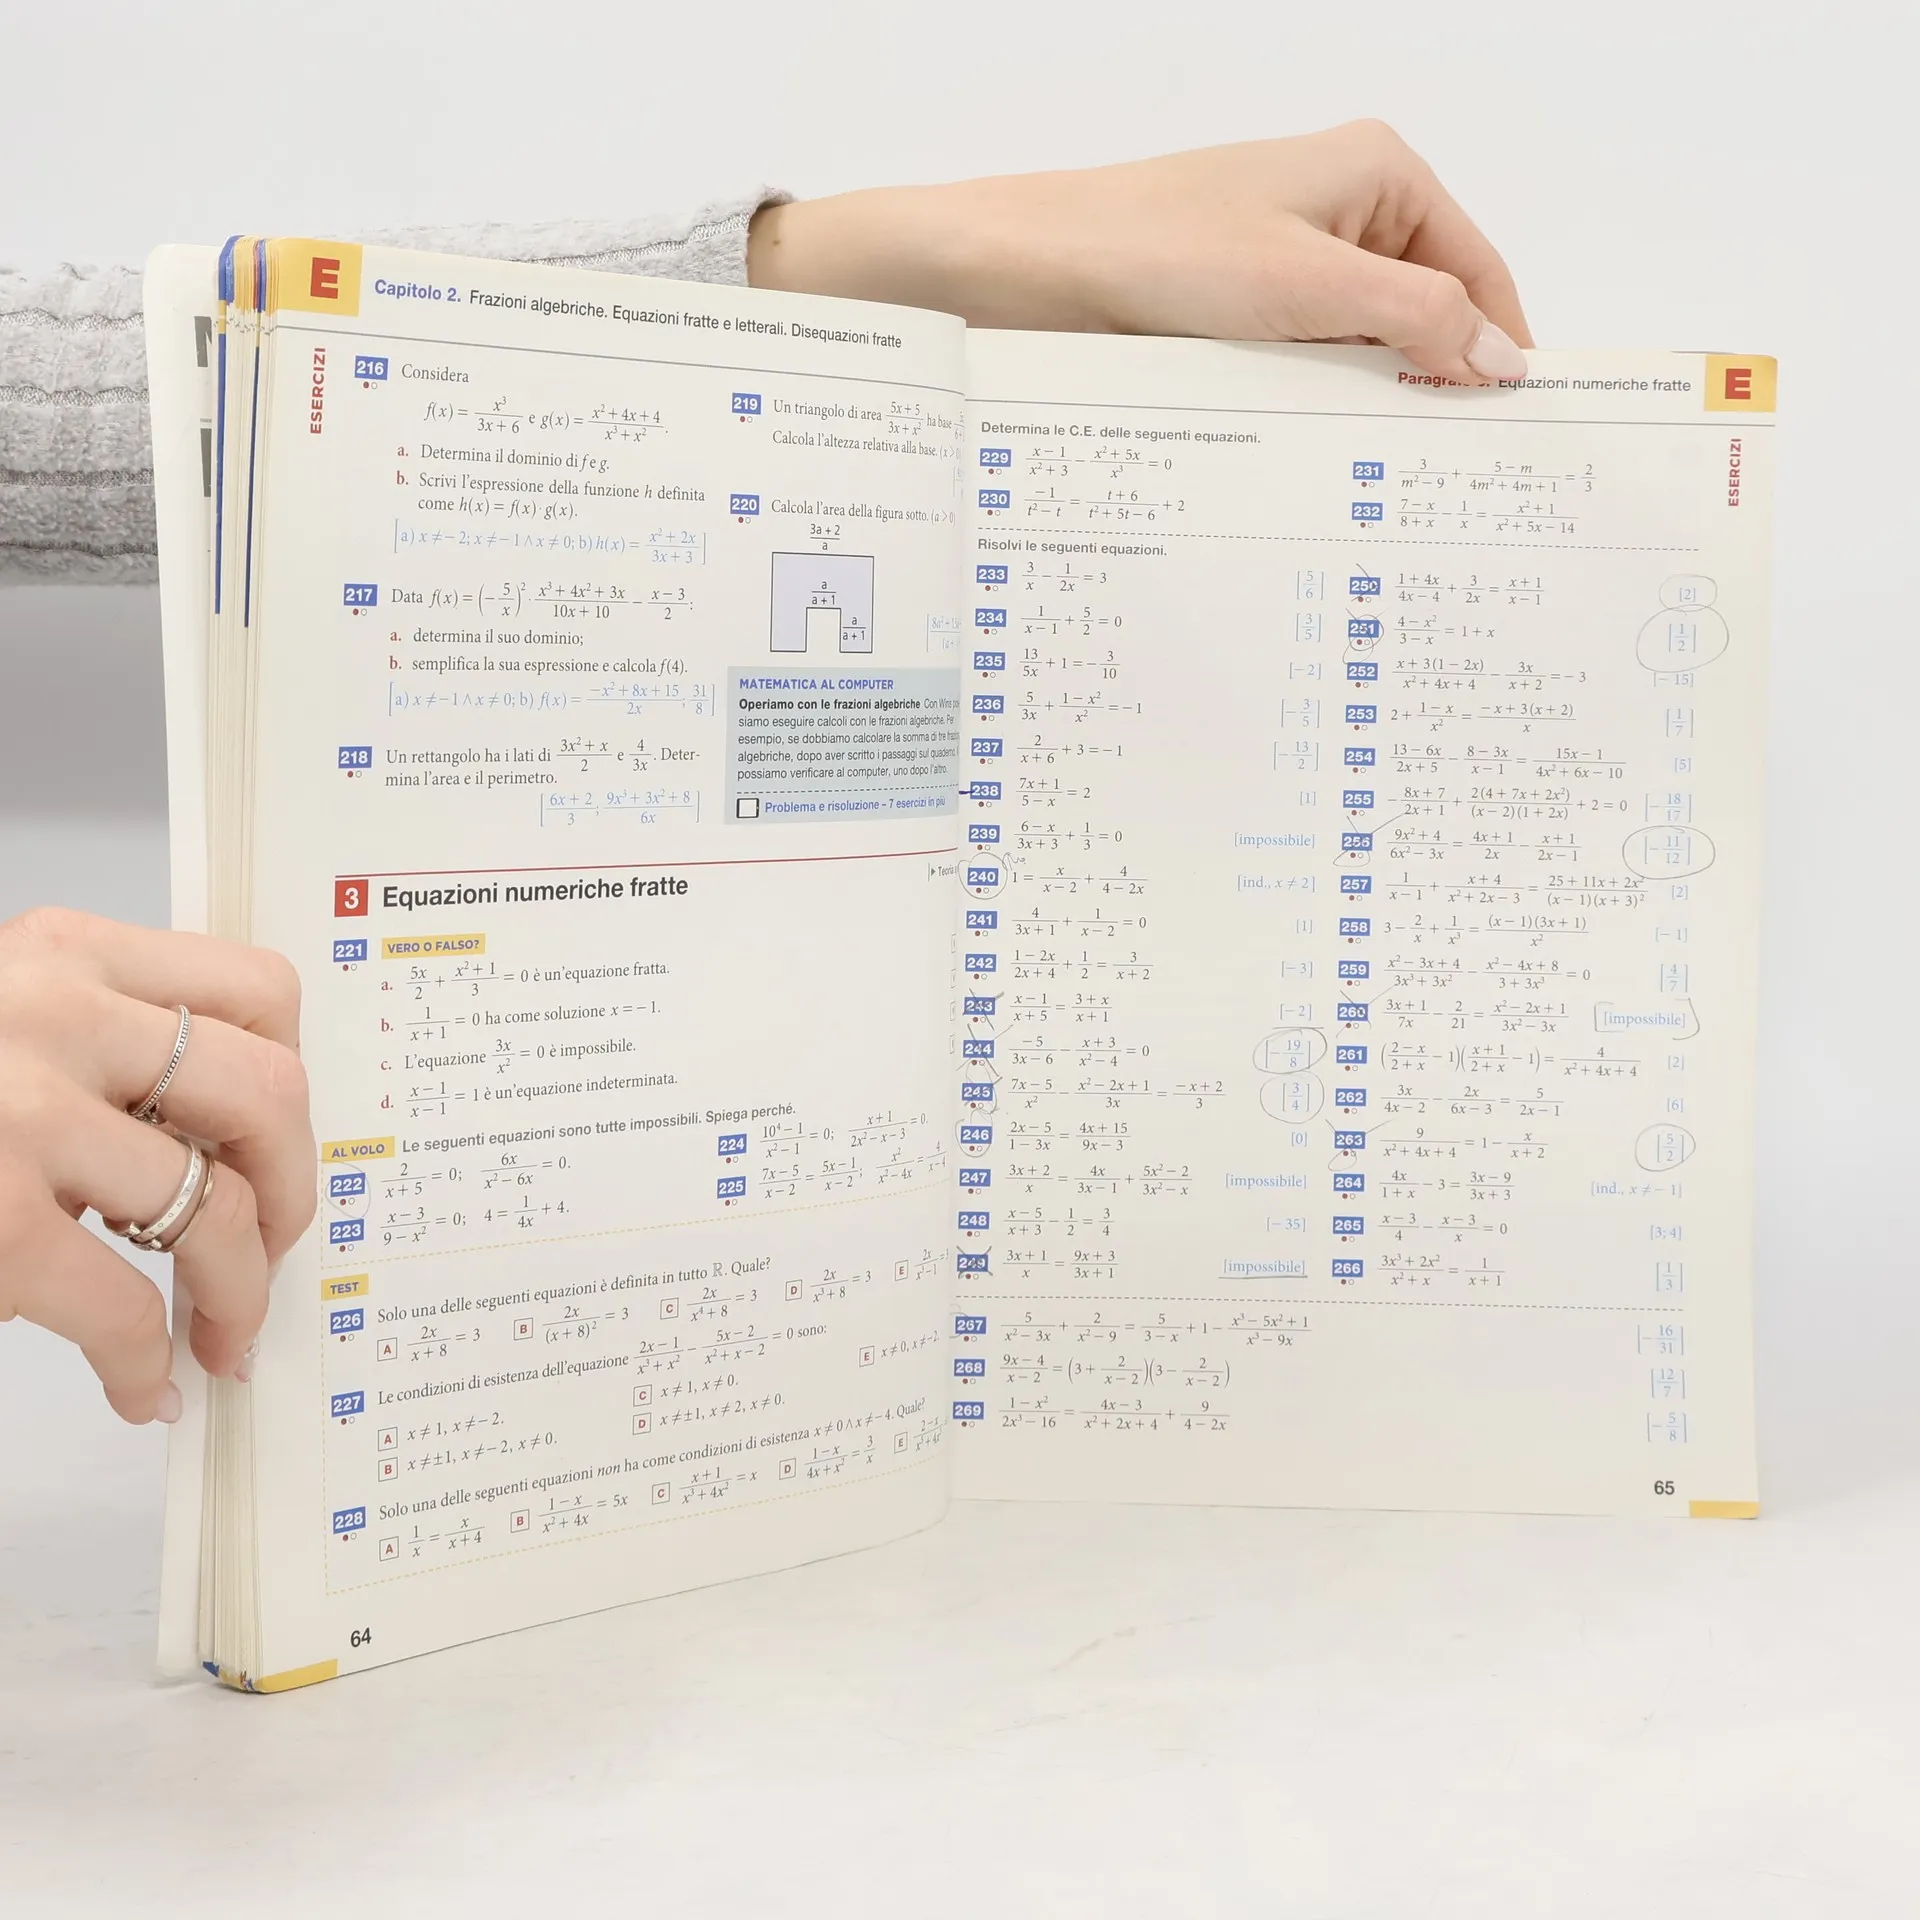 E
Capitolo 2. Frazioni algebriche. Equazioni fratte e letterali. Disequazioni fratte
ESERCIZI
216 Considera
f(x) = x³/(3x + 6) e g(x) = (x² + 4x + 4)/(x³ + x²).
a. Determina il dominio di f e g.
b. Scrivi l'espressione della funzione h definita
come h(x) = f(x) · g(x).
[a) x ≠ − 2; x ≠ − 1 ∧ x ≠ 0; b) h(x) = (x² + 2x)/(3x + 3)]
217 Data f(x) = (− 5/x)² · (x³ + 4x² + 3x)/(10x + 10) − (x − 3)/2:
a. determina il suo dominio;
b. semplifica la sua espressione e calcola f(4).
[a) x ≠ −1 ∧ x ≠ 0; b) f(x) = (−x² + 8x + 15)/2x; 31/8]
218 Un rettangolo ha i lati di (3x² + x)/2 e 4/3x. Deter-
mina l'area e il perimetro.
[(6x + 2)/3; (9x³ + 3x² + 8)/6x]
219 Un triangolo di area (5x + 5)/(3x + x²) ha base
Calcola l'altezza relativa alla base.
220 Calcola l'area della figura sotto. (a > 0)
(3a + 2)/a
a/(a + 1)
a/(a + 1)
MATEMATICA AL COMPUTER
Operiamo con le frazioni algebriche Con
siamo eseguire calcoli con le frazioni algebriche. Per
esempio, se dobbiamo calcolare la somma di tre
algebriche, dopo aver scritto i passaggi sul quaderno,
possiamo verificare al computer, uno dopo l'altro.
Problema e risoluzione – 7 esercizi in più
3 Equazioni numeriche fratte
221 VERO O FALSO?
a. 5x/2 + (x² + 1)/3 = 0 è un'equazione fratta.
b. 1/(x + 1) = 0 ha come soluzione x = − 1.
c. L'equazione 3x/x² = 0 è impossibile.
d. (x − 1)/(x − 1) = 1 è un'equazione indeterminata.
AL VOLO Le seguenti equazioni sono tutte impossibili. Spiega perché.
222 2/(x + 5) = 0; 6x/(x² − 6x) = 0.
223 (x − 3)/(9 − x²) = 0; 4 = 1/4x + 4.
224 (10⁴ − 1)/(x² − 1) = 0; (x + 1)/(2x² − x − 3) = 0.
225 (7x − 5)/(x − 2) = (5x − 1)/(x − 2); x²/(x² − 4x) = 4/(x − 4)
TEST
226 Solo una delle seguenti equazioni è definita in tutto ℝ. Quale?
A 2x/(x + 8) = 3 B 2x/(x + 8)² = 3 C 2x/(x⁴ + 8) = 3 D 2x/(x³ + 8) = 3 E
227 Le condizioni di esistenza dell'equazione (2x − 1)/(x³ + x²) − (5x − 2)/(x² + x − 2) = 0 sono:
A x ≠ 1, x ≠ − 2. C x ≠ 1, x ≠ 0. E x ≠ 0, x ≠ − 2.
B x ≠ ±1, x ≠ − 2, x ≠ 0. D x ≠ ±1, x ≠ 2, x ≠ 0.
228 Solo una delle seguenti equazioni non ha come condizioni di esistenza x ≠ 0 ∧ x ≠ − 4. Quale?
A 1/x = x/(x + 4) B (1 − x)/(x² + 4x) = 5x C (x + 1)/(x³ + 4x²) = x D (1 − x)/(4x + x²) = 3/x E
64
Equazioni numeriche fratte
E
ESERCIZI
Determina le C.E. delle seguenti equazioni.
229 (x − 1)/(x² + 3) − (x² + 5x)/x³ = 0
230 −1/(t² − t) = (t + 6)/(t² + 5t − 6) + 2
231 3/(m² − 9) + (5 − m)/(4m² + 4m + 1) = 2/3
232 (7 − x)/(8 + x) − 1/x = (x² + 1)/(x² + 5x − 14)
Risolvi le seguenti equazioni.
233 3/x − 1/2x = 3 [5/6]
234 1/(x − 1) + 5/2 = 0 [3/5]
235 13/5x + 1 = − 3/10 [− 2]
236 5/3x + (1 − x²)/x² = − 1 [− 3/5]
237 2/(x + 6) + 3 = − 1 [− 13/2]
238 (7x + 1)/(5 − x) = 2 [1]
239 (6 − x)/(3x + 3) + 1/3 = 0 [impossibile]
240 1 = x/(x − 2) + 4/(4 − 2x) [ind., x ≠ 2]
241 4/(3x + 1) + 1/(x − 2) = 0 [1]
242 (1 − 2x)/(2x + 4) + 1/2 = 3/(x + 2) [− 3]
243 (x − 1)/(x + 5) = (3 + x)/(x + 1) [− 2]
244 −5/(3x − 6) − (x + 3)/(x² − 4) = 0 [− 19/8]
245 (7x − 5)/x² − (x² − 2x + 1)/3x = (−x + 2)/3 [3/4]
246 (2x − 5)/(1 − 3x) = (4x + 15)/(9x − 3) [0]
247 (3x + 2)/x = 4x/(3x − 1) + (5x² − 2)/(3x² − x) [impossibile]
248 (x − 5)/(x + 3) − 1/2 = 3/4 [− 35]
249 (3x + 1)/x = (9x + 3)/(3x + 1) [impossibile]
250 (1 + 4x)/(4x − 4) + 3/2x = (x + 1)/(x − 1) [2]
251 (4 − x²)/(3 − x) = 1 + x [1/2]
252 (x + 3(1 − 2x))/(x² + 4x + 4) − 3x/(x + 2) = − 3 [− 15]
253 2 + (1 − x)/x² = (−x + 3(x + 2))/x [1/7]
254 (13 − 6x)/(2x + 5) − (8 − 3x)/(x − 1) = (15x − 1)/(4x² + 6x − 10) [5]
255 − (8x + 7)/(2x + 1) + 2(4 + 7x + 2x²)/((x − 2)(1 + 2x)) + 2 = 0 [− 18/17]
256 (9x² + 4)/(6x² − 3x) = (4x + 1)/2x − (x + 1)/(2x − 1) [− 11/12]
257 1/(x − 1) + (x + 4)/(x² + 2x − 3) = (25 + 11x + 2x²)/((x − 1)(x + 3)²) [2]
258 3 − 2/x + 1/x³ = (x − 1)(3x + 1)/x² [− 1]
259 (x² − 3x + 4)/(3x³ + 3x²) − (x² − 4x + 8)/(3 + 3x³) = 0 [4/7]
260 (3x + 1)/7x − 2/21 = (x² − 2x + 1)/(3x² − 3x) [impossibile]
261 ((2 − x)/(2 + x) − 1)((x + 1)/(2 + x) − 1) = 4/(x² + 4x + 4) [2]
262 3x/(4x − 2) − 2x/(6x − 3) = 5/(2x − 1) [6]
263 9/(x² + 4x + 4) = 1 − x/(x + 2) [5/2]
264 4x/(1 + x) − 3 = (3x − 9)/(3x + 3) [ind., x ≠ − 1]
265 (x − 3)/4 − (x − 3)/x = 0 [3; 4]
266 (3x³ + 2x²)/(x² + x) = 1/(x + 1) [1/3]
267 5/(x² − 3x) + 2/(x² − 9) = 5/(3 − x) + 1 − (x³ − 5x² + 1)/(x³ − 9x) [− 16/31]
268 (9x − 4)/(x − 2) = (3 + 2/(x − 2))(3 − 2/(x − 2)) [12/7]
269 (1 − x²)/(2x³ − 16) = (4x − 3)/(x² + 2x + 4) + 9/(4 − 2x) [− 5/8]
65